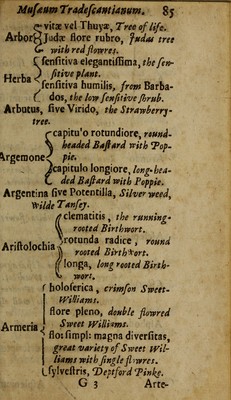 Musæum Tradescantianum. 85
vitæ vel Thuyæ, Tree of life.
Arbor Judæ flore rubro, Judas tree
with red flowres.
sensitiva elegantissima, the sen-
Herba sitive plant.
sensitiva humilis, from Barba-
dos, the low sensitive shrub.
Arbutus, sive Virido, the Strawberry-
tree.
capitu'o rotundiore, round-
headed Bastard with Pop-
Argemone pie.
capitulo longiore, long-hea-
ded Bastard with Poppie.
Argentina sive Potentilla, Silver weed,
Wilde Tansey.
clematitis, the running-
rooted Birthwort.
Aristolochia rotunda radice, round
rooted Birthwort.
longa, long rooted Birth-
wort.
holoserica, crimson Sweet-
Williams.
flore pleno, double flowred
Armeria Sweet Williams.
flo: simpl: magna diversitas,
great variety of Sweet Wil-
liams with single flowres.
sylvestris, Deptford Pinke.
G 3 Arte-